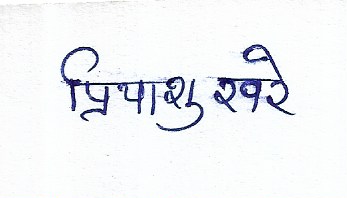 प्रियाशु खरे